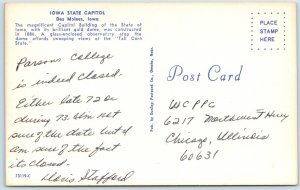 IOWA STATE CAPITOL
Des Moines, Iowa
The magnificent Capitol Building of the State of
Iowa, with its brilliant gold dome, was constructed
in 1886. A glass-enclosed observatory atop the
dome affords sweeping views of the "Tall Corn
State.
PLACE
STAMP
HERE
Post Card
Parsons College
is indeed closed.
Either late 72 or
during 73. Am not
sure of the date but I
am sure of the fact
its closed.
Doris Stafford
WCPPC
6217 Northwest Hwy
Chicago, Illinois
60631
75119-X